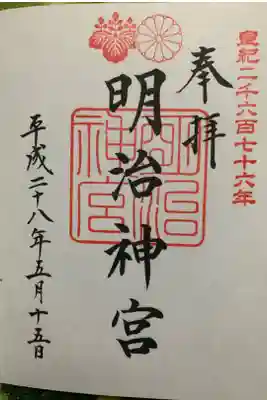 皇紀二千六百七十六年
奉拝
明治神宮
明治神宮
平成二十八年五月十五日